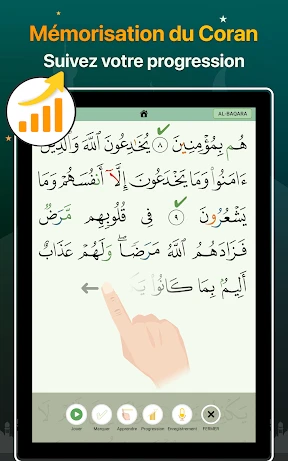 Mémorisation du Coran
Suivez votre progression
AL-BAQARA
هُم بِمُؤْمِنِينَ ٨ يُخَٰدِعُونَ ٱللَّهَ وَٱلَّذِينَ
ءَامَنُوا۟ وَمَا يَخْدَعُونَ إِلَّآ أَنفُسَهُمْ وَمَا
يَشْعُرُونَ ٩ فِى قُلُوبِهِم مَّرَضٌ
فَزَادَهُمُ ٱللَّهُ مَرَضًا ۖ وَلَهُمْ عَذَابٌ
أَلِيمٌۢ بِمَا كَانُوا۟ يَكْ
Jouer Marquer Apprendre Progression Enregistrement FERMER